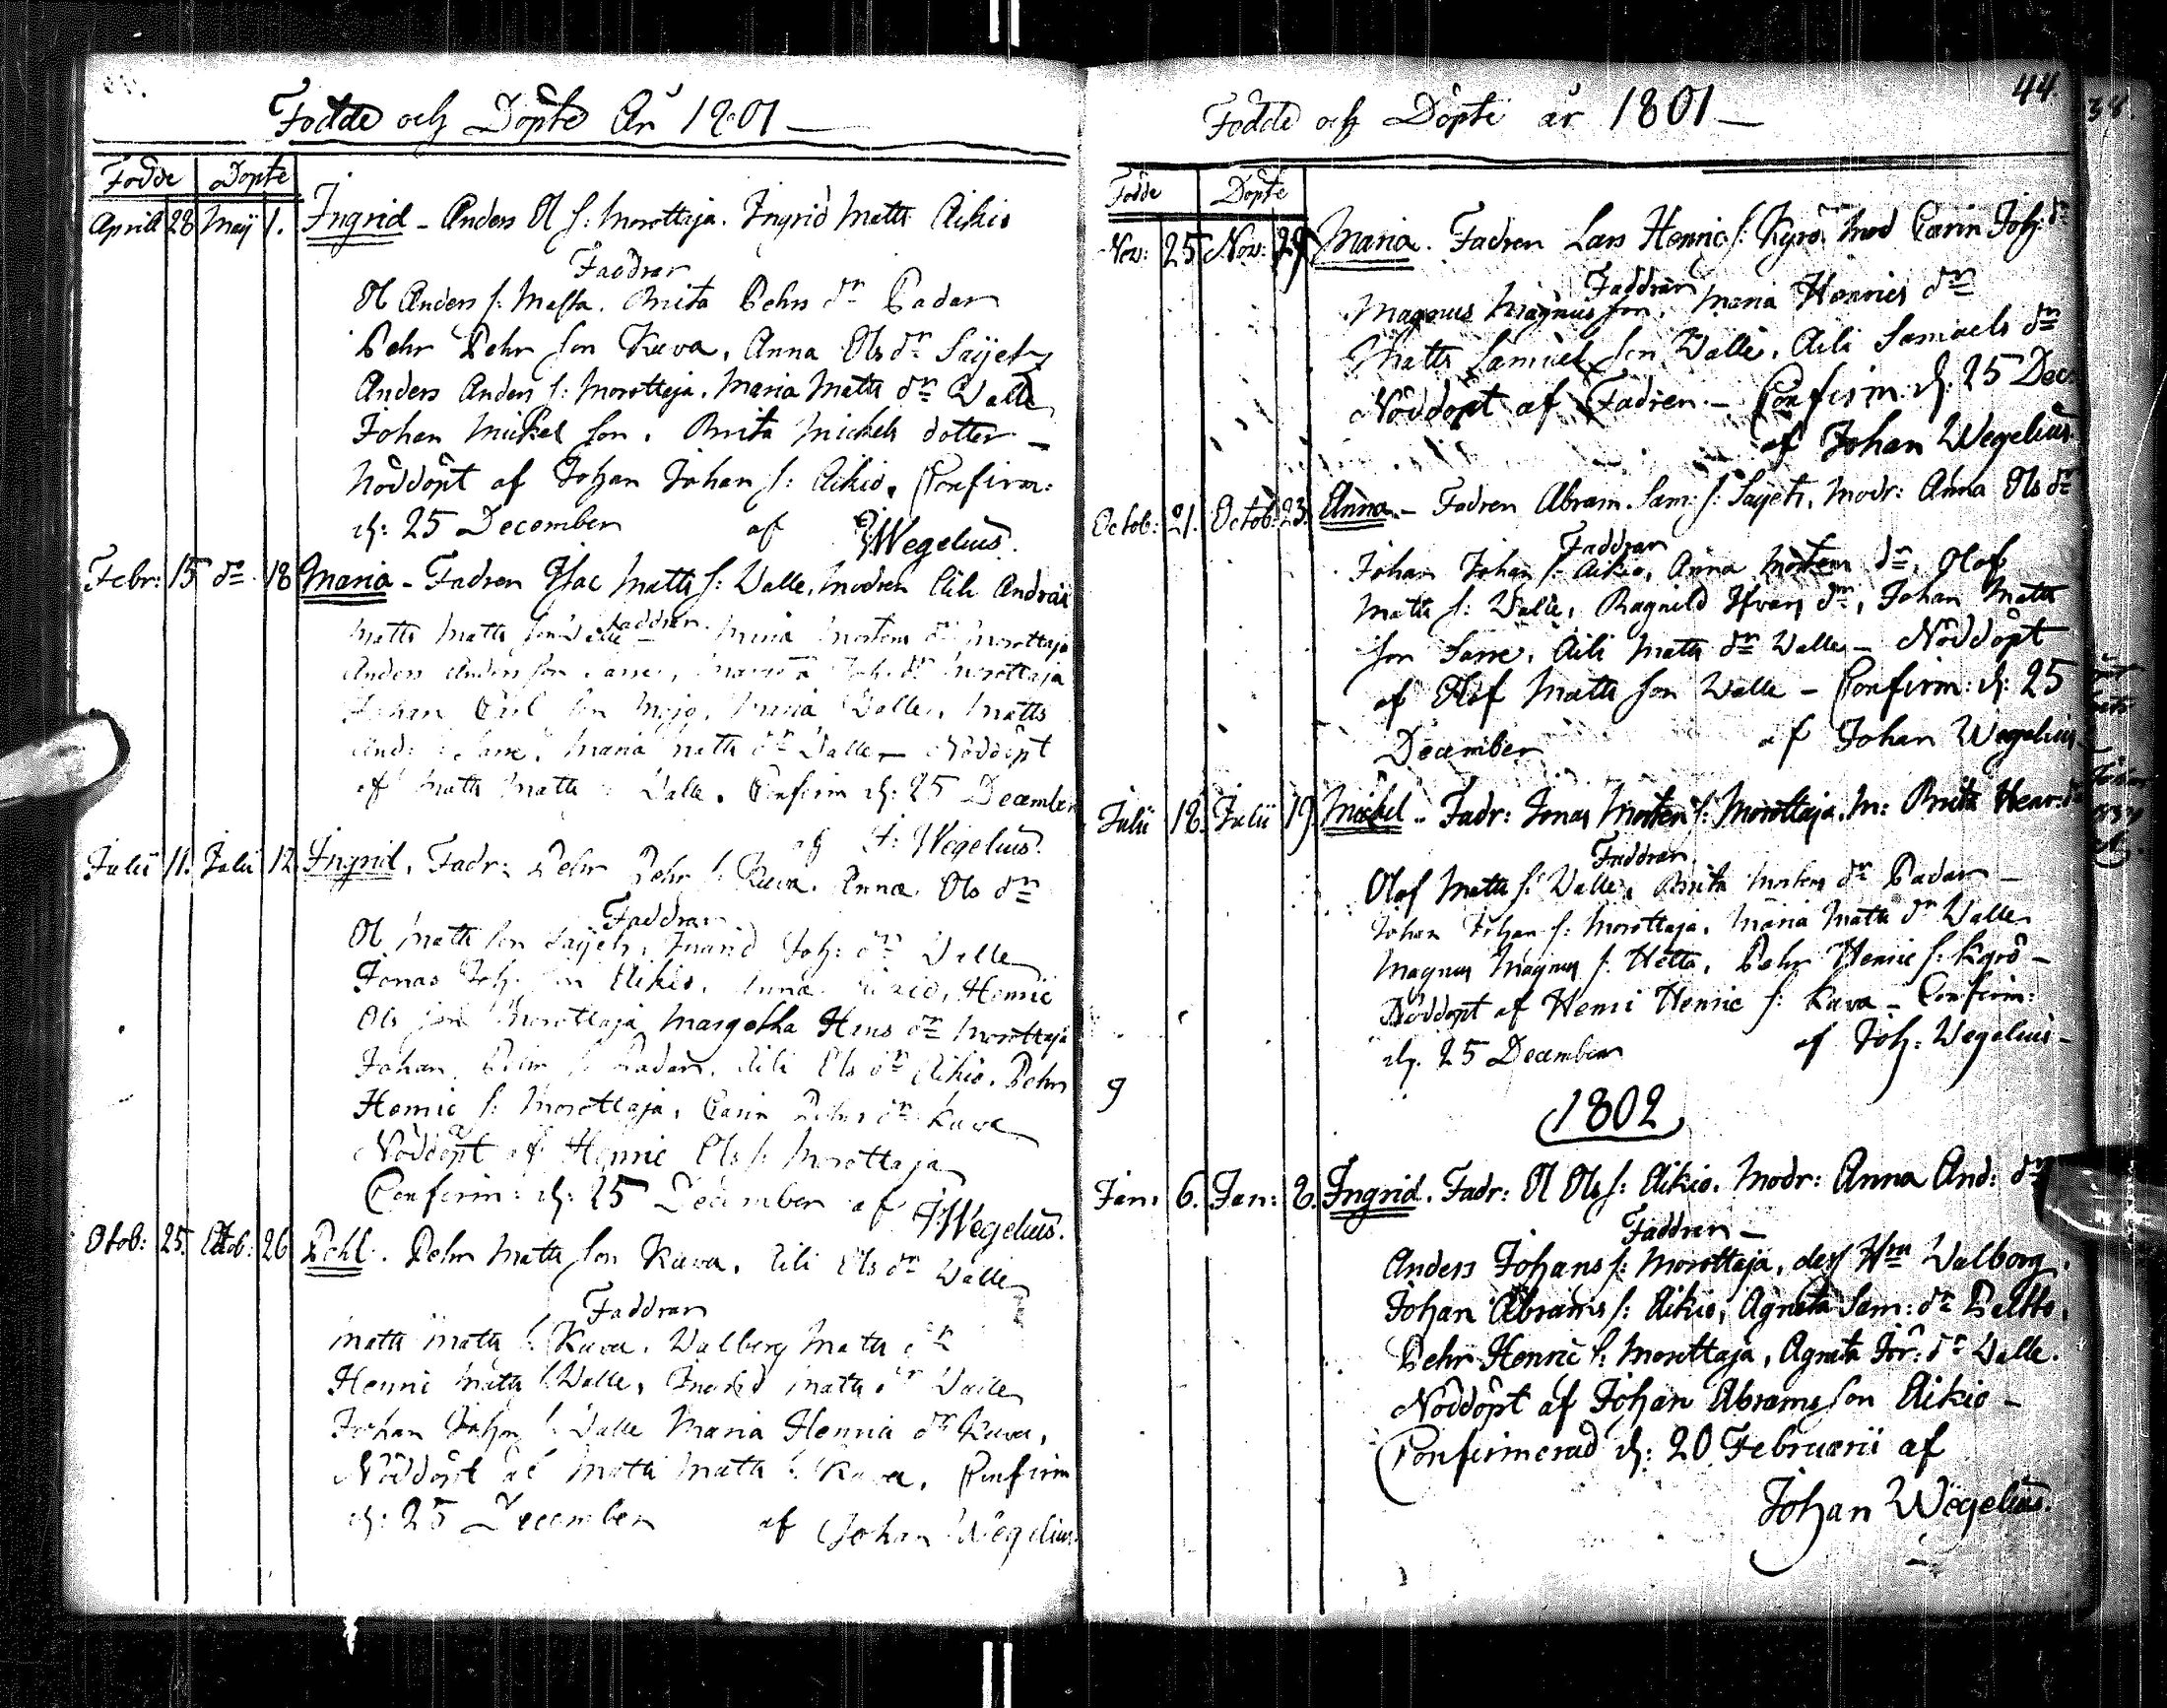 Födde och Döpte År 1801
Födde Döpte
Aprill 28 Maij 1. Ingrid - Anders Ol s: Morottaja. Ingrid Matts Aikio
Faddrar
Ol Anders s: Massa. Brita Pehrs dr Padar
Pehr Pehr son Kuva, Anna Ols dr Saijets
Anders Anders s: Morottaja. Maria Matts dr Valle
Johan Mickel son. Brita Mickels dotter -
Nöddöpt af Johan Johan s: Aikio. Confirm:
d: 25 December af J: Wegelius.
Febr: 15 do 18 Maria - Fadren Isac Matts s: Valle, modren Aili Andrae
Faddrar.
Matts Matts son Valle Maria Mortens dr Morottaja
Anders Anders son Sarre, Joh. dr Morottaja
Johan Carl son Maria Valle, Matts
And: Sarre, Maria Matts dr Valle - Nöddöpt
af Matts Matts Valle. Confirm d: 25 December
af J: Wegelius.
Julii 11. Julii 12. Ingrid. Fadr: Pehr Pehr s: Kuva. Anna Ols dr
Faddrar
Ol Matts son Saijets, Ingrid Joh: dr Valle
Jonas Joh. son Aikio. Anna Aikio, Henric
Ols son Morottaja Margetha Hans dr Morottaja
Johan s: Padar. Aili Ols dr Aikio. Pehr
Henric s: Morottaja, Carin Pehrs dr Kuva
Nöddöpt af Henric Ols s: Morottaja
Confirm: d: 25 December af J: Wegelius.
Octob: 25. Octob: 26 Pehl. Pehr Matts son Kuva. Aili Ols dr Valle
Faddrar
Matts Matts s: Kuva. Valborg Matts dr
Henric Matts s: Valle, Ingrid Matts dr Valle
Johan Johan s: Valle Maria Henrics dr Kuva,
Nöddöpt af Matts Matts s: Kuva. Confirm
d: 25 December af Johan Wegelius
44.
Födde och Döpte år 1801 -
Födde Döpte
Nov: 25 Nov: 29 Maria. Fadren Lars Henric s: Kyrö. Mod Carin Joh: dr
Faddrar
Magnus Magnus son, Maria Henrics dr
Matts Samuel son Valle. Aili Samuels dr
Nöddöpt af Fadren - Confirm. d: 25 Dec.
af Johan Wegelius
Octob: 21. Octob: 23. Anna - Fadren Abram. Sam: s: Saijets. Modr: Anna Ols dr
Faddrar
Johan Johan s: Aikio, Anna Mortens dr, Olof
Matts s: Valle, Ragnild Ifvars dr, Johan Matts
son Sarre. Aili Matts dr Valle - Nöddöpt
af Olof Matts son Valle - Confirm: d: 25
December af Johan Wegelius
Julii 18. Julii 19 Mickel - Fadr: Jonas Morten s: Morottaja. M: Brita Henr: dr
Faddrar.
Olof Matts s: Valle, Brita Mortens dr Padar -
Johan Johan s: Morottaja. Maria Matts dr Valle
Magnus Magnus s: Hetta, Pehr Henric s: Kyrö -
Nöddöpt af Henric Henric s: Kuva - Confirm:
d. 25 December af Joh: Wegelius -
1802
Jan: 6. Jan: 8. Ingrid. Fadr: Ol Ols s: Aikio. Modr: Anna And: dr
Faddrar -
Anders Johans s: Morottaja, dess Hu Valborg.
Johan Abrams s: Aikio, Agneta Sam: dr Paltto.
Pehr Henric s: Morottaja, Agneta Jör: dr Valle.
Nöddöpt af Johan Abrams son Aikio -
Confirmerad d: 20 Februarii af
Johan Wegelius.